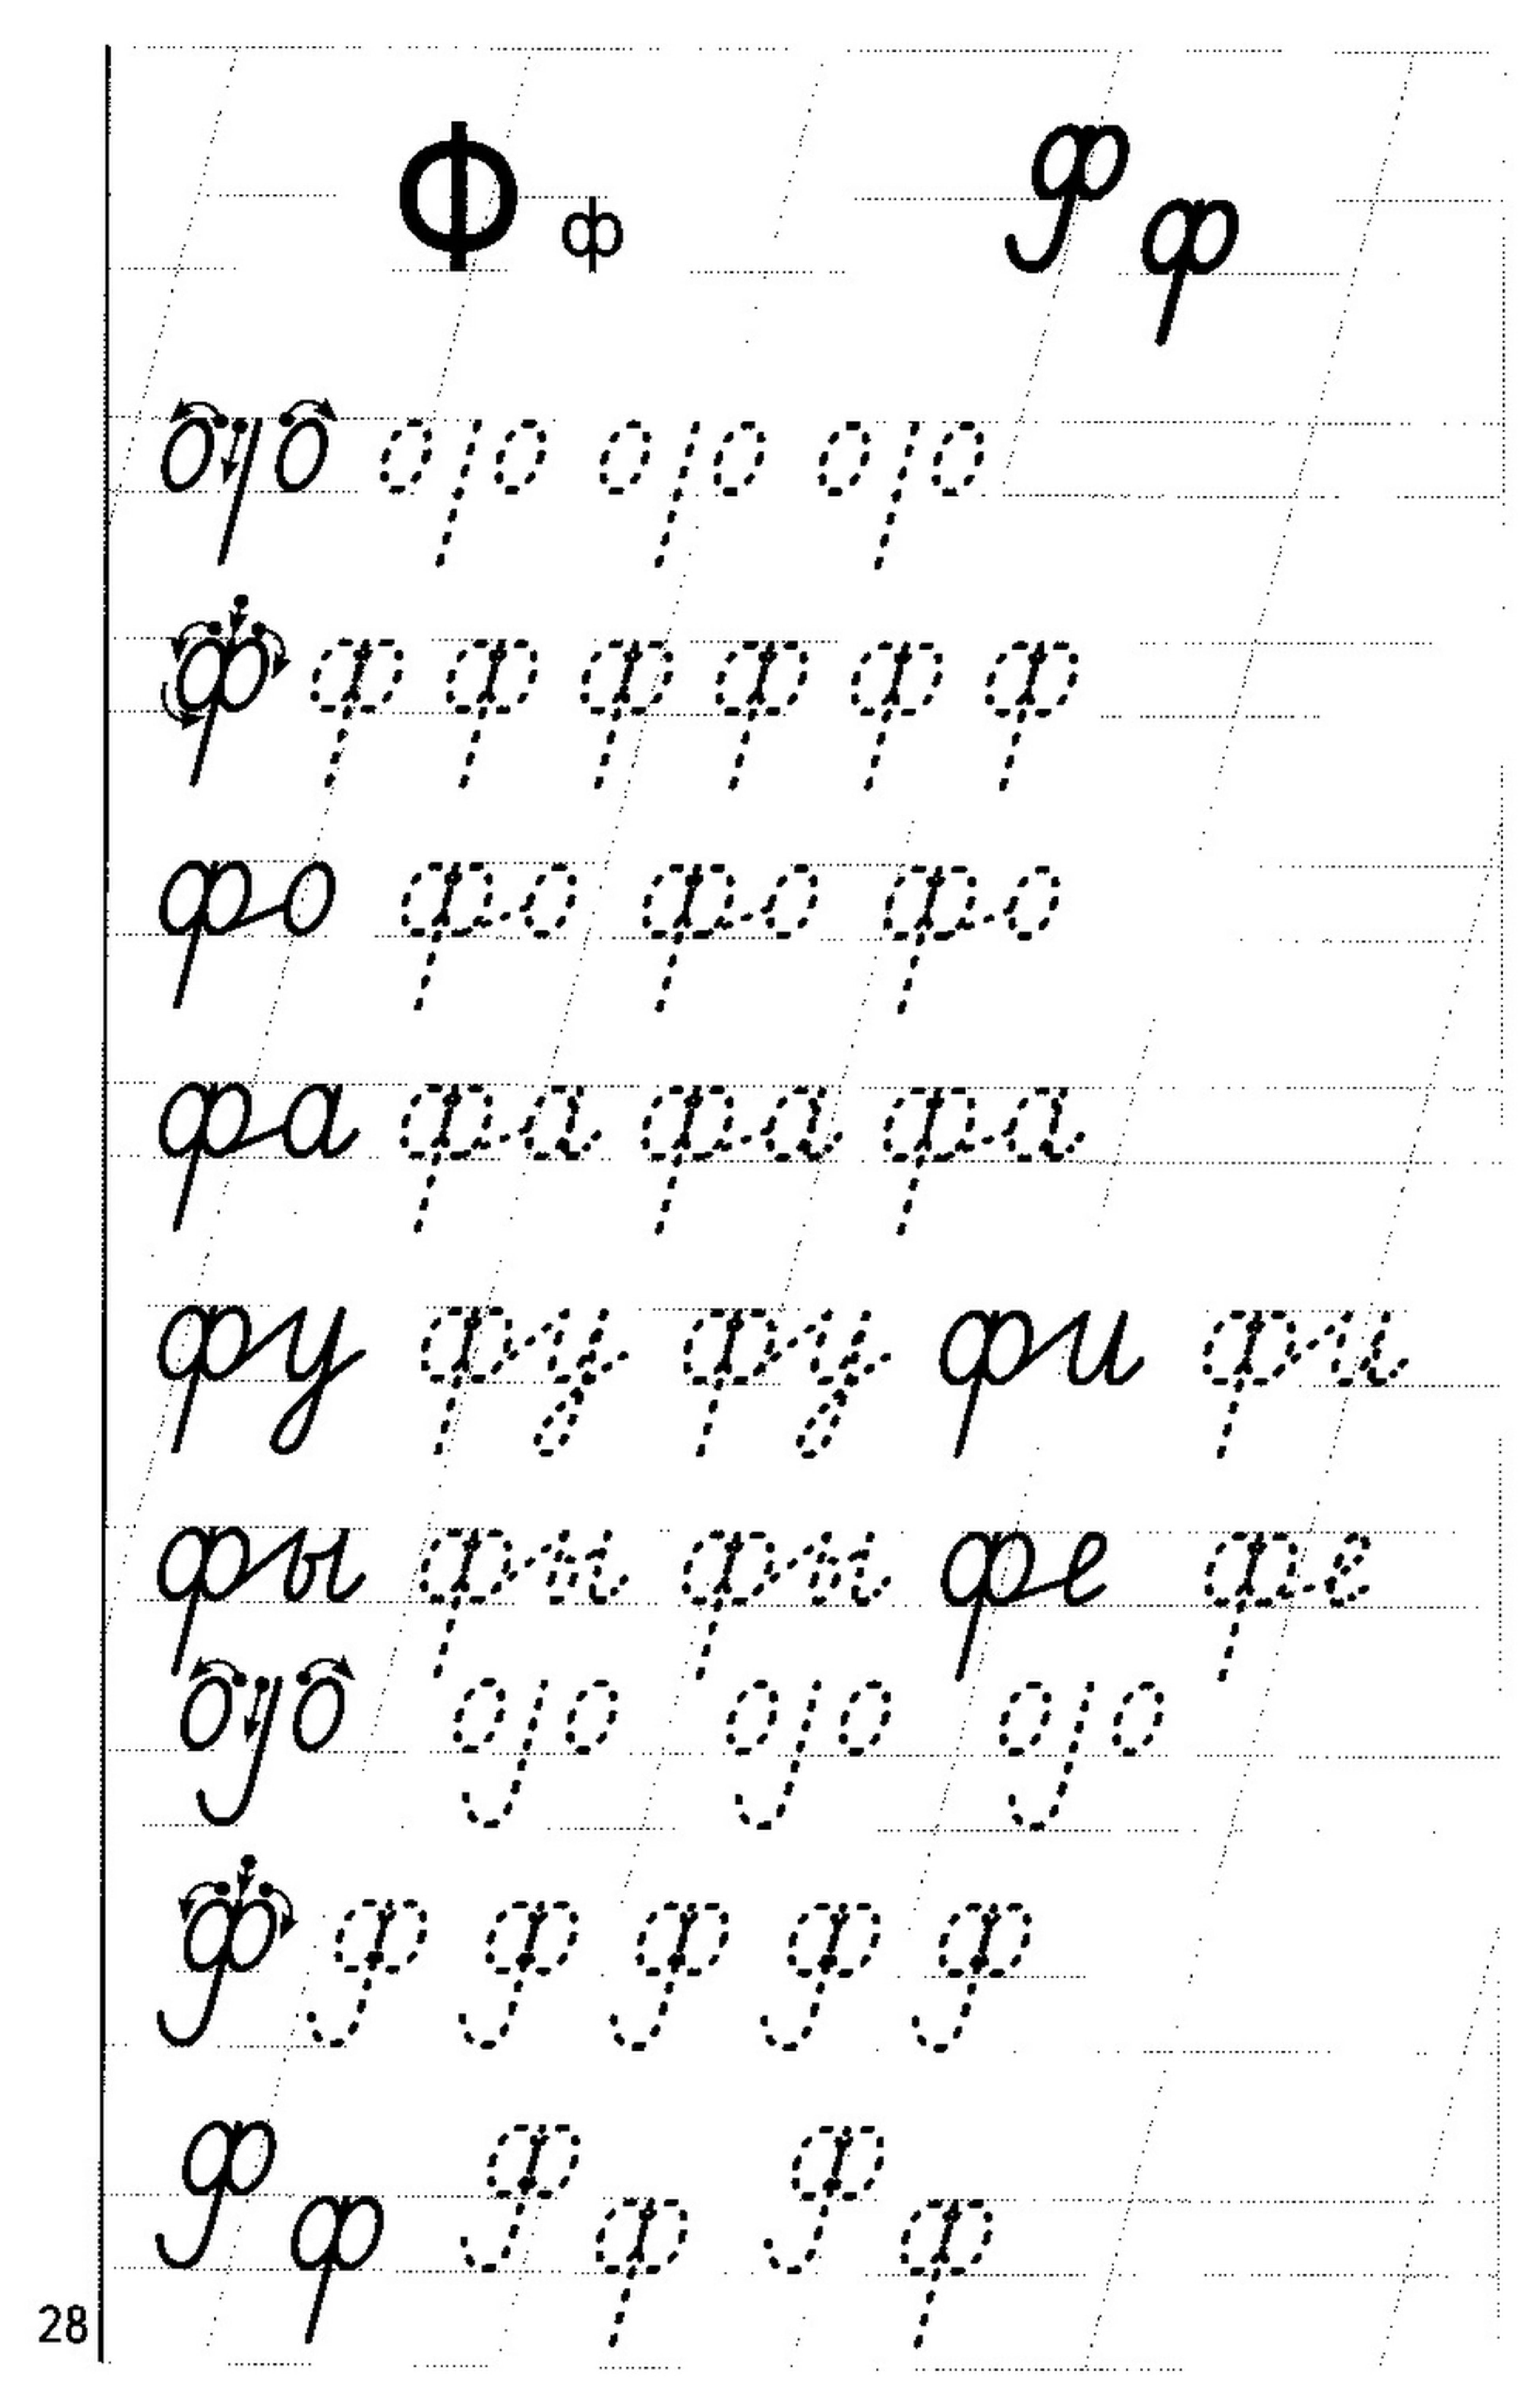 Ф ф Ф ф
ф ф ф ф ф ф ф
фо фо фо фо
фа фа фа фа
фу фу фу фи фи
фы фы фы фе фе
Ф Ф Ф Ф Ф Ф
Ф ф Ф ф Ф ф
28